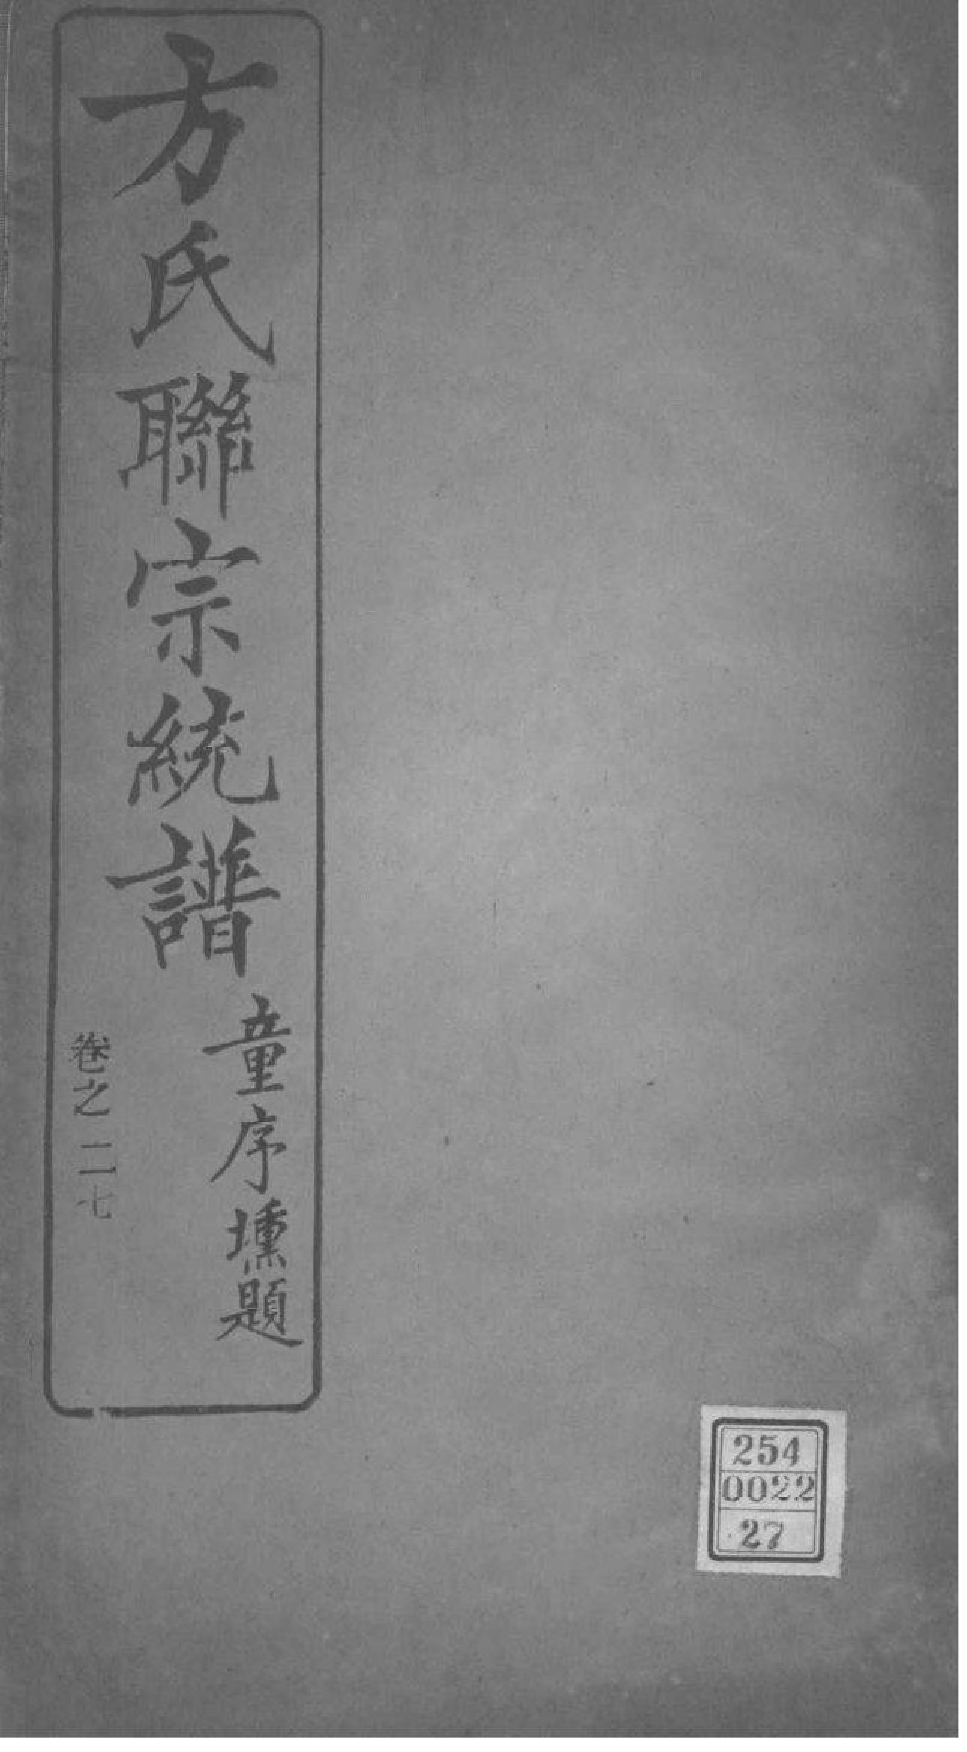 方氏聯宗統譜
童序壎題
卷之二七
254
0022
27